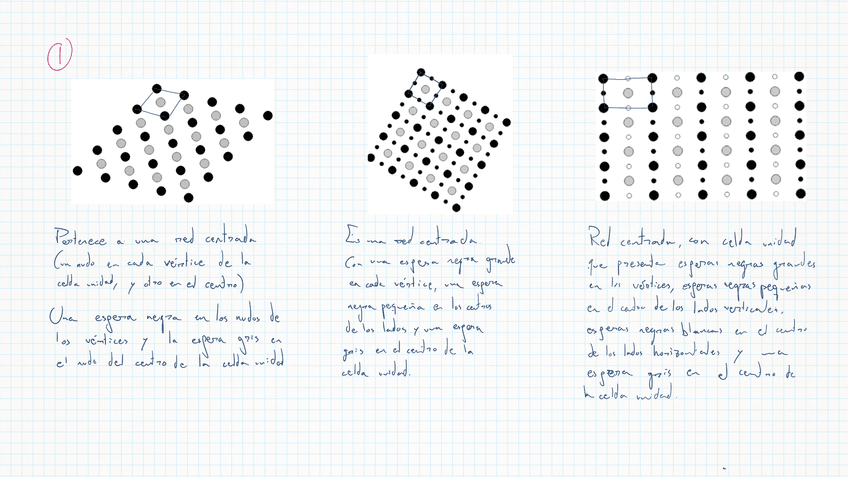 1
Pertenece a una red centrada
(un nudo en cada vértice de la
celda unidad, y otro en el centro)
Una esfera negra en los nudos de
los vértices y la esfera gris en
el nudo del centro de la celda unidad
Es una red centrada.
Con una esfera negra grande
en cada vértice, una esfera
negra pequeña en los centros
de los lados y una esfera
gris en el centro de la
celda unidad.
Red centrada, con celda unidad
que presenta esferas negras grandes
en los vértices, esferas negras pequeñas
en el centro de los lados verticales,
esferas negras blancas en el centro
de los lados horizontales y una
esfera gris en el centro de
la celda unidad.